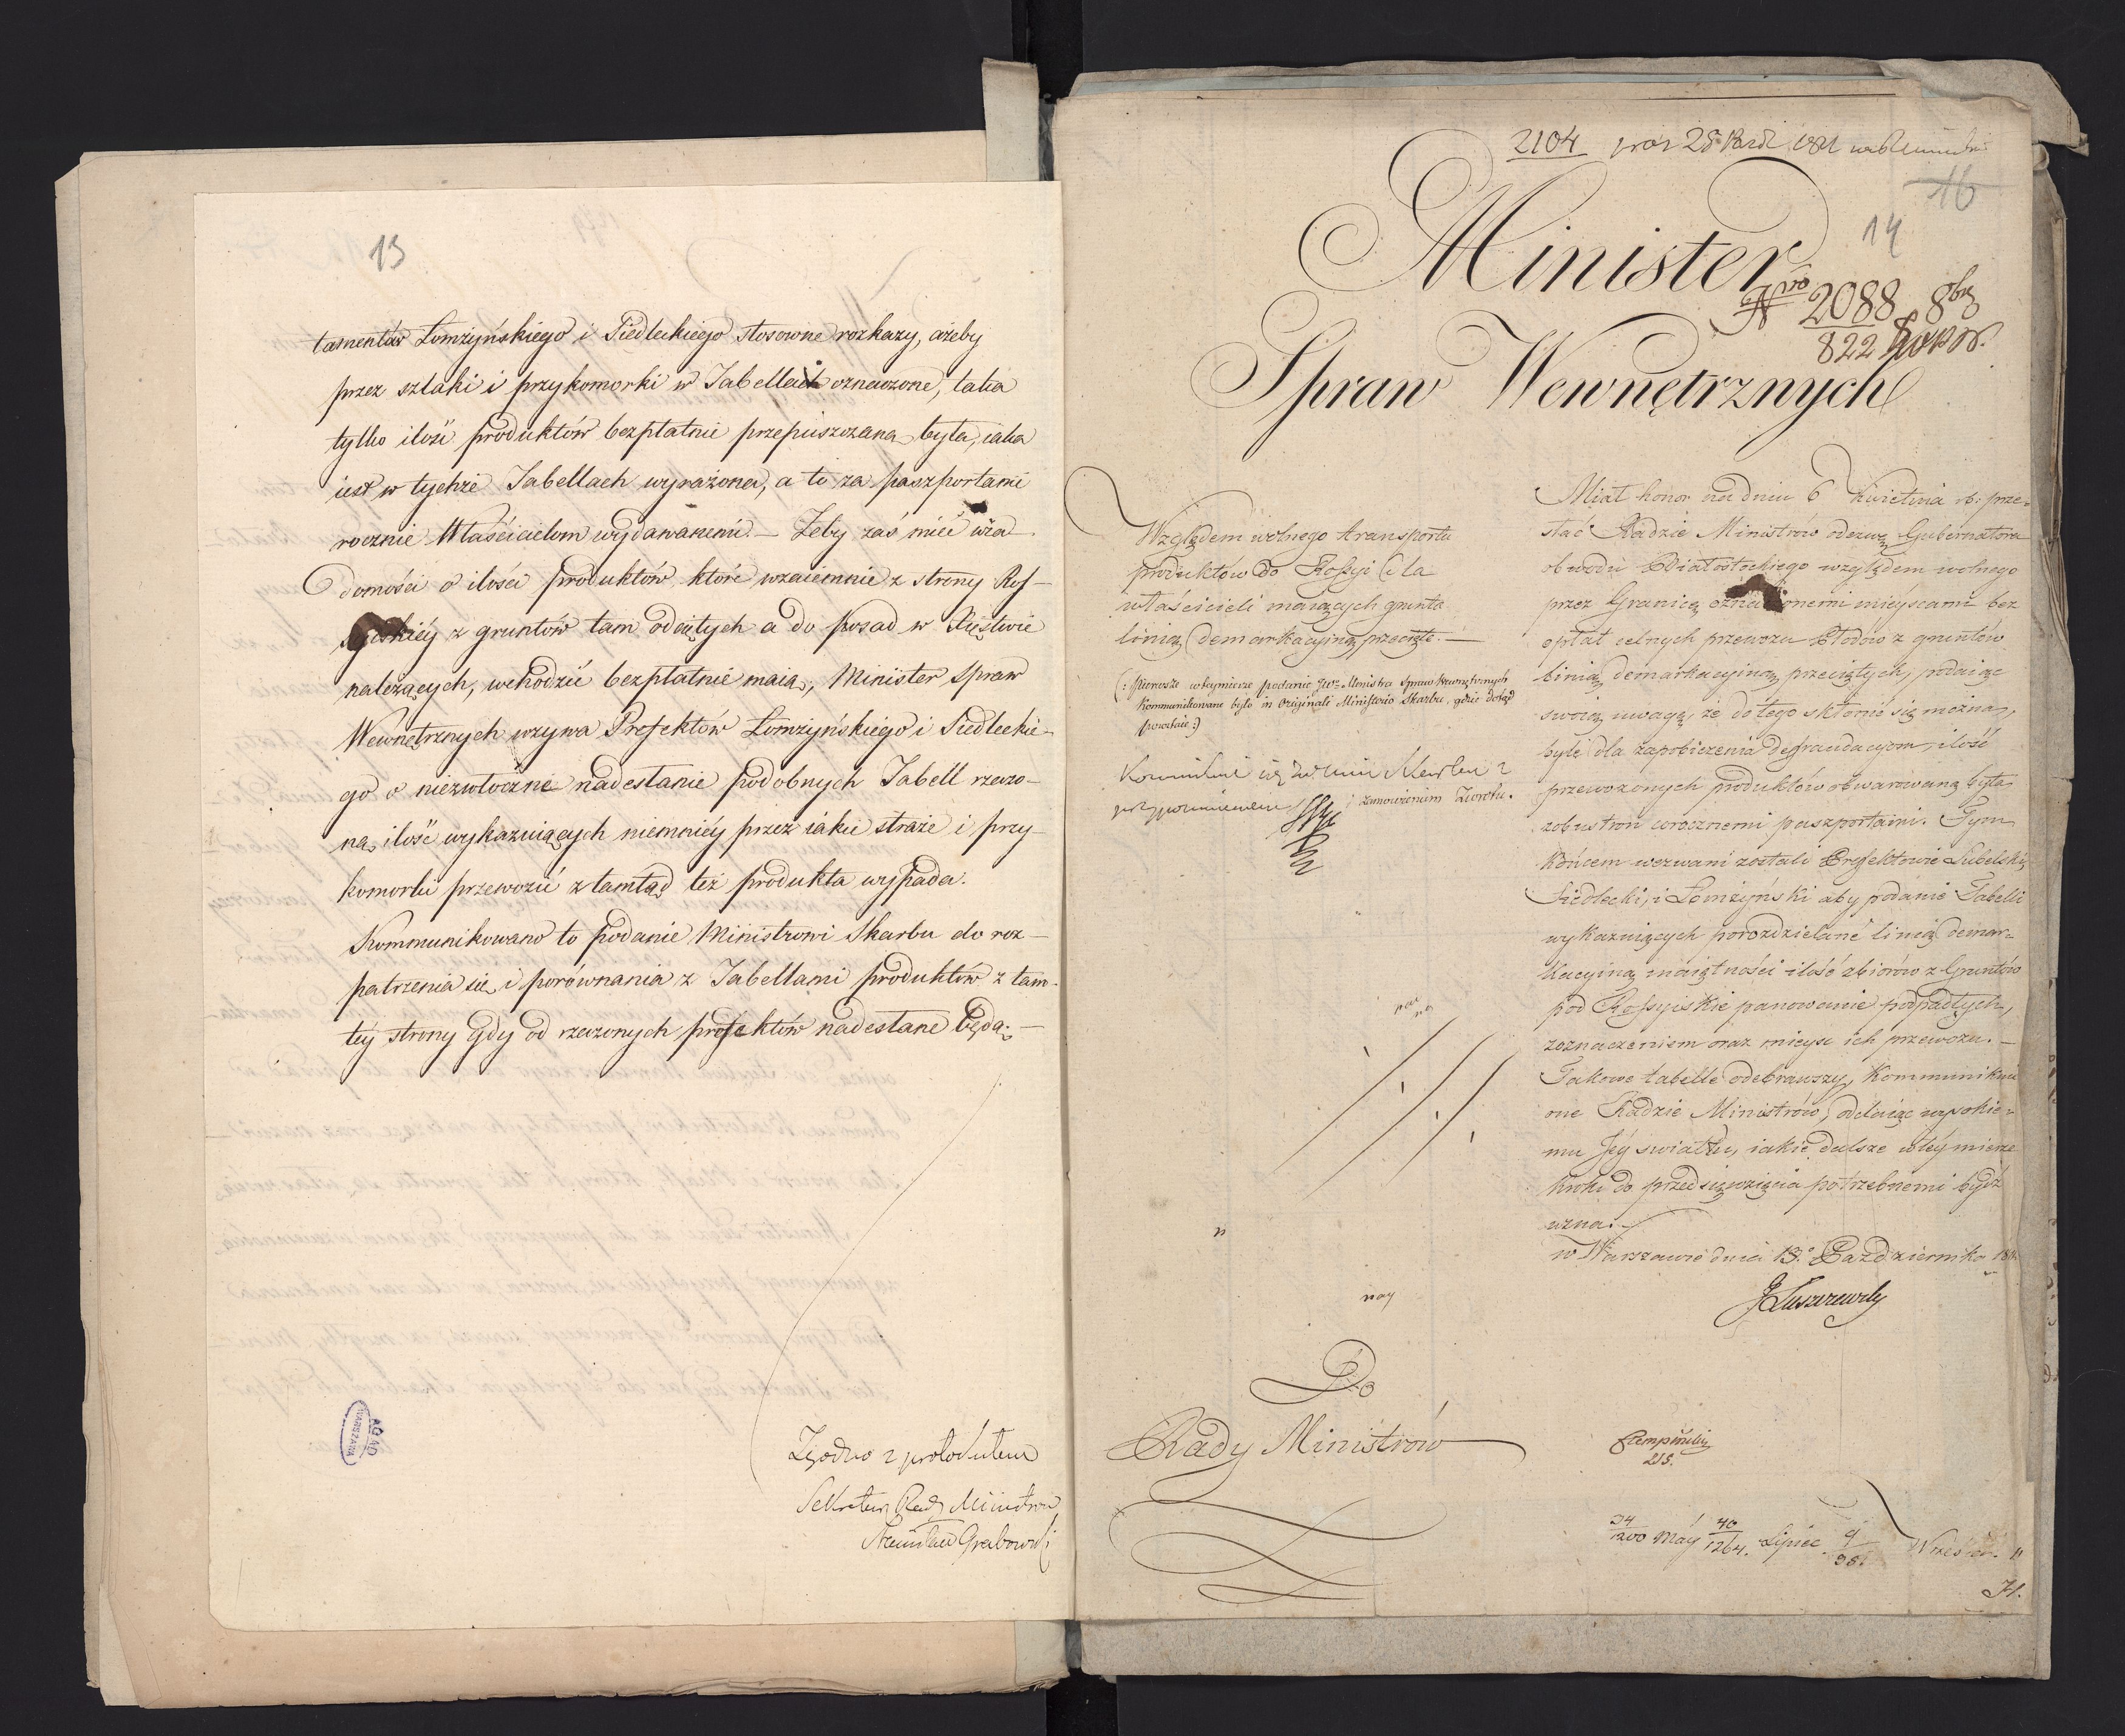 13
tamentów Łomżyńskiego i Siedleckiego stosowne rozkazy, ażeby
przez szlaki i przykomorki w Tabellach oznaczone, taka
tylko ilość produktów bezpłatnie przepuszczana była, iaka
iest w tychże Tabellach wyrażona, a to za paszportami
rocznie Właścicielom wydawanemi. – Żeby zaś mieć wia-
domości o ilości produktów które wzaiemnie z strony Ros-
syiskiéy z gruntów tam odciętych a do posad w Xięstwie
należących, wchodzić bezpłatnie maią, Minister Spraw
Wewnętrznych wzywa Prefektów Łomżyńskiego i Siedleckie-
go o niezwłoczne nadesłanie podobnych Tabell rzeczo-
ną ilość wykazuiących niemniéy przez iakie straże i przy-
komorki przewozić z tamtąd też produkta wypada.
Kommunikowano to podanie Ministrowi Skarbu do roz-
patrzenia się i porównania z Tabellami produktów z tam-
téy strony gdy od rzeczonych prefektów nadesłane będą. –
Zgodno z protokułem
Sekretarz Rady Ministrów
Stanisław Grabowski
AGAD
WARSZAWA
2104
16
14
Minister
Nro 2088 8br
822
Spraw Wewnętrznych
Względem wolnego transportu
produktów do Rossyi dla
właścicieli maiących grunta
linią demarkacyiną przecięte. –
(: Pierwsze w téymierze podanie JWo Ministra Spraw Wewnętrznych
Kommunikowane było in Originali Ministrowi Skarbu, gdzie dotąd
pozostaie :)
i zamówieniem zwrotu.
Miał honor na dniu 6 Kwietnia rb: prze-
słać Radzie Ministrów odezwę Gubernatora
obwodu Białostockiego względem wolnego
przez Granicę oznaczonemi mieyscami bez
opłat celnych przewozu Płodów z gruntów
linią demarkacyiną przeciętych, podaiąc
swoią uwagę, że do tego skłonić się można,
byle dla zapobieżenia defraudacyom, ilość
przewożonych produktów obwarowaną była
zobustron corocznemi paszportami. Tym
końcem wezwani zostali Prefektowie Lubelski,
Siedlecki, i Łomżyński aby podanie Tabelli
wykazuiących porozdzielane linią demar-
kacyiną maiętności ilość zbiorów z Gruntów
pod Rossyiskie panowanie podpadłych,
zoznaczeniem oraz mieysc ich przewozu. –
Takowe tabelle odebrawszy, Kommunikuie
one Radzie Ministrów, oddaiąc wysokie-
mu Jéy swiatłu, iakie dalsze w téy mierze
kroki do przedsięwzięcia potrzebnemi bydź
uzna. –
w Warszawie dnia 13. Października 181
J Łuszczewski
Do
Rady Ministrów
215.
34/200 Máy 40/1264. Lipiec 4/96. Wrzesień. 11
H.